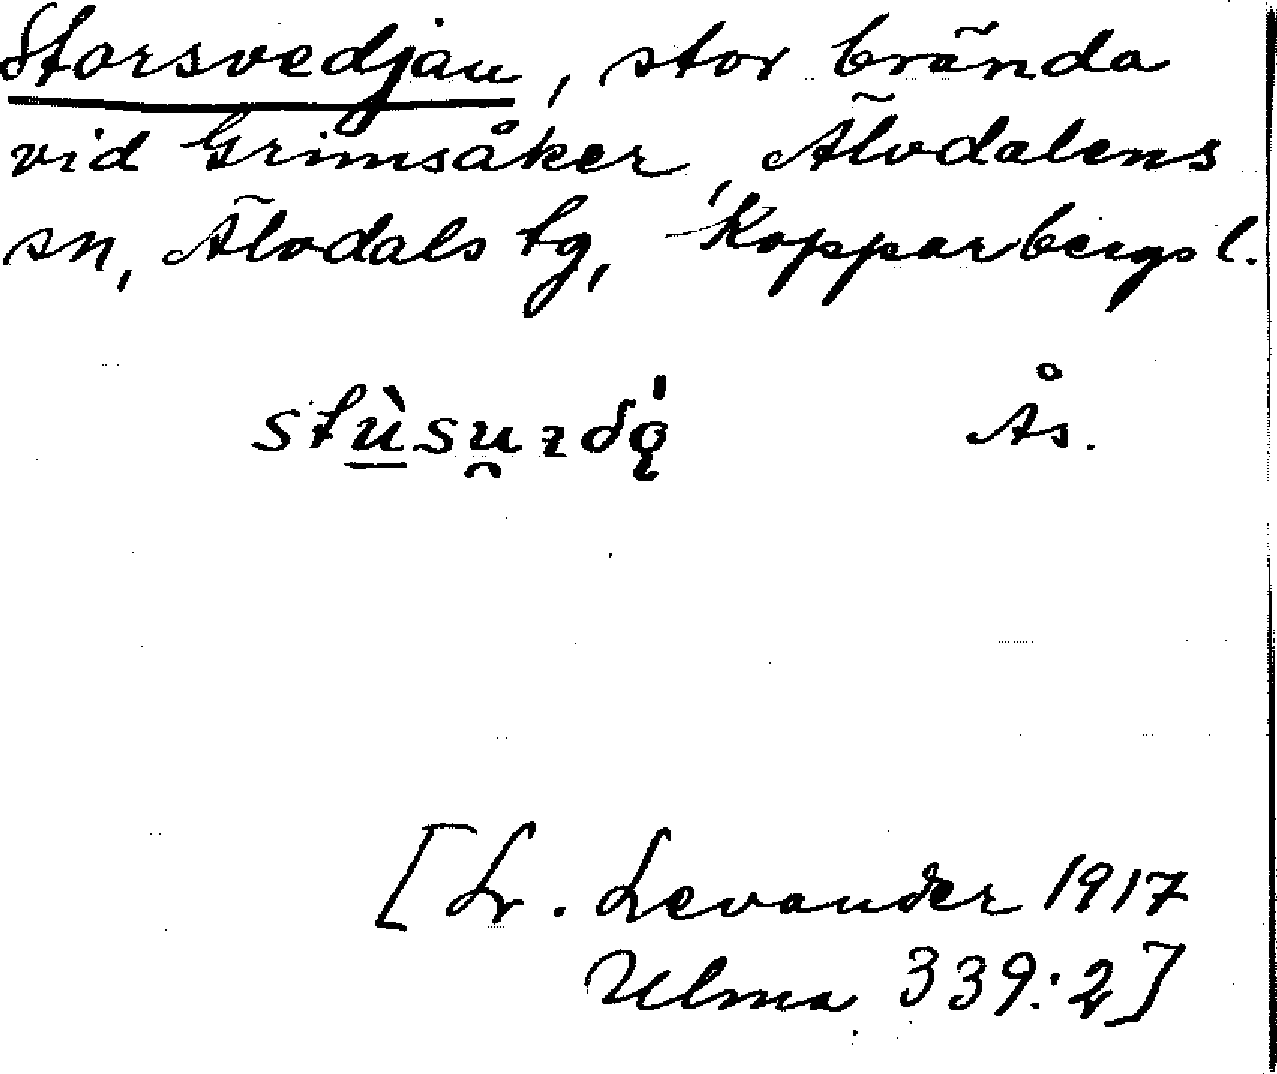 Storsvedjan, stor brända
vid Grimsåker, Älvdalens
sn, Älvdals tg, Kopparbergs l.
stù̲su̯zdą̍ Ås.
[Lr. Levander 1917
Ulma 339:2]